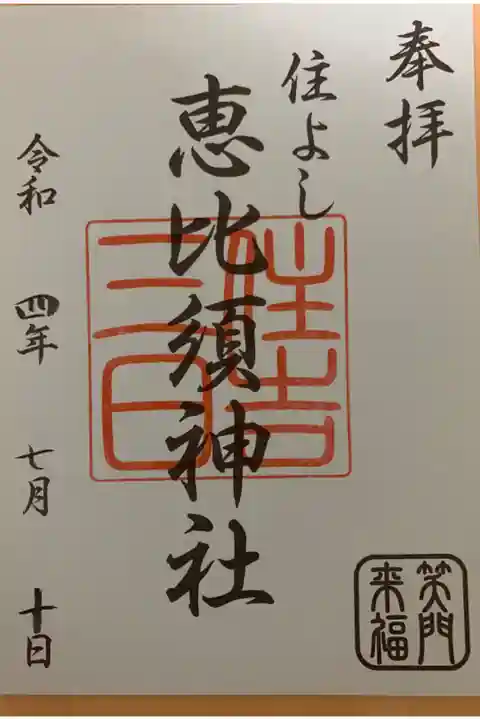 奉拝
住よし
恵比須神社
令和 四年 七月 十日
住吉
三日
笑門
来福